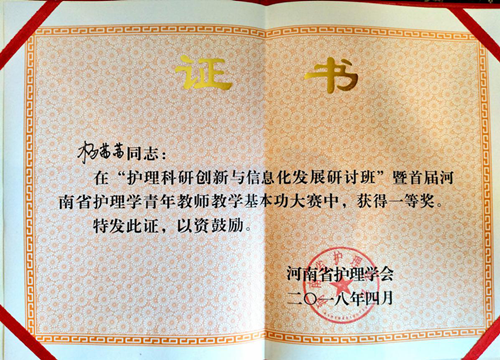 证 书
杨茜茜同志：
在“护理科研创新与信息化发展研讨班”暨首届河
南省护理学青年教师教学基本功大赛中，获得一等奖。
特发此证，以资鼓励。
河南省护理学会
二〇一八年四月